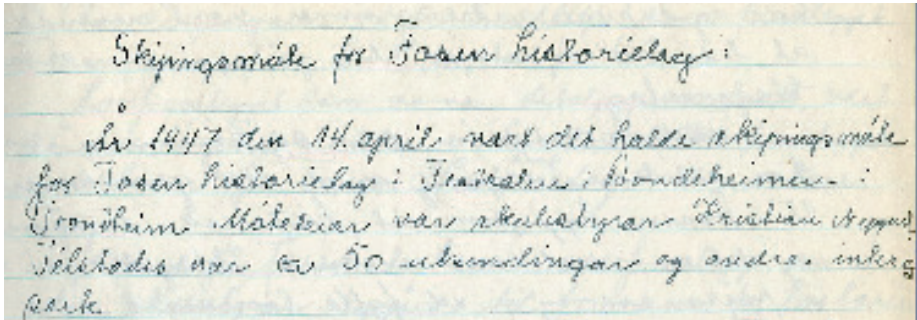 Skipingsmøte for Fosen historielag:
År 1947 den 14. april vart det halde skipingsmøte
for Fosen historielag i Teatralen, Bondeheimen i
Trondheim Møteleiar var skulestyrar Kristian Nygård
Tilstades var ca 50 utsendingar og andre interes
serte.